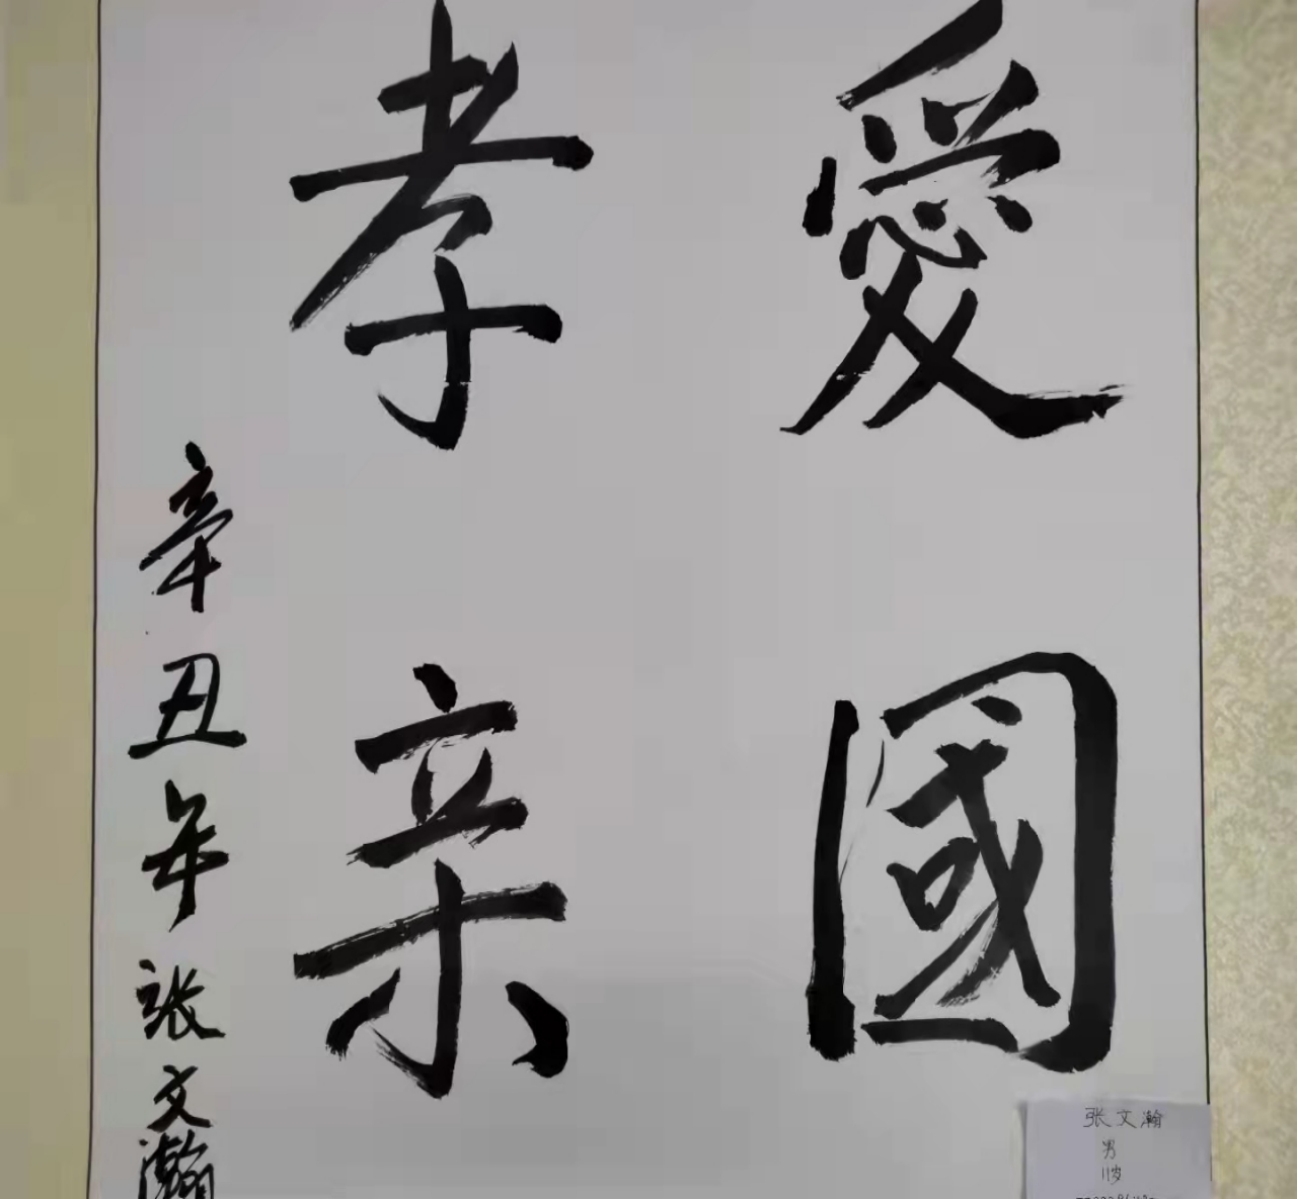 愛國
孝亲
辛丑年张文瀚
张文瀚
男
11岁